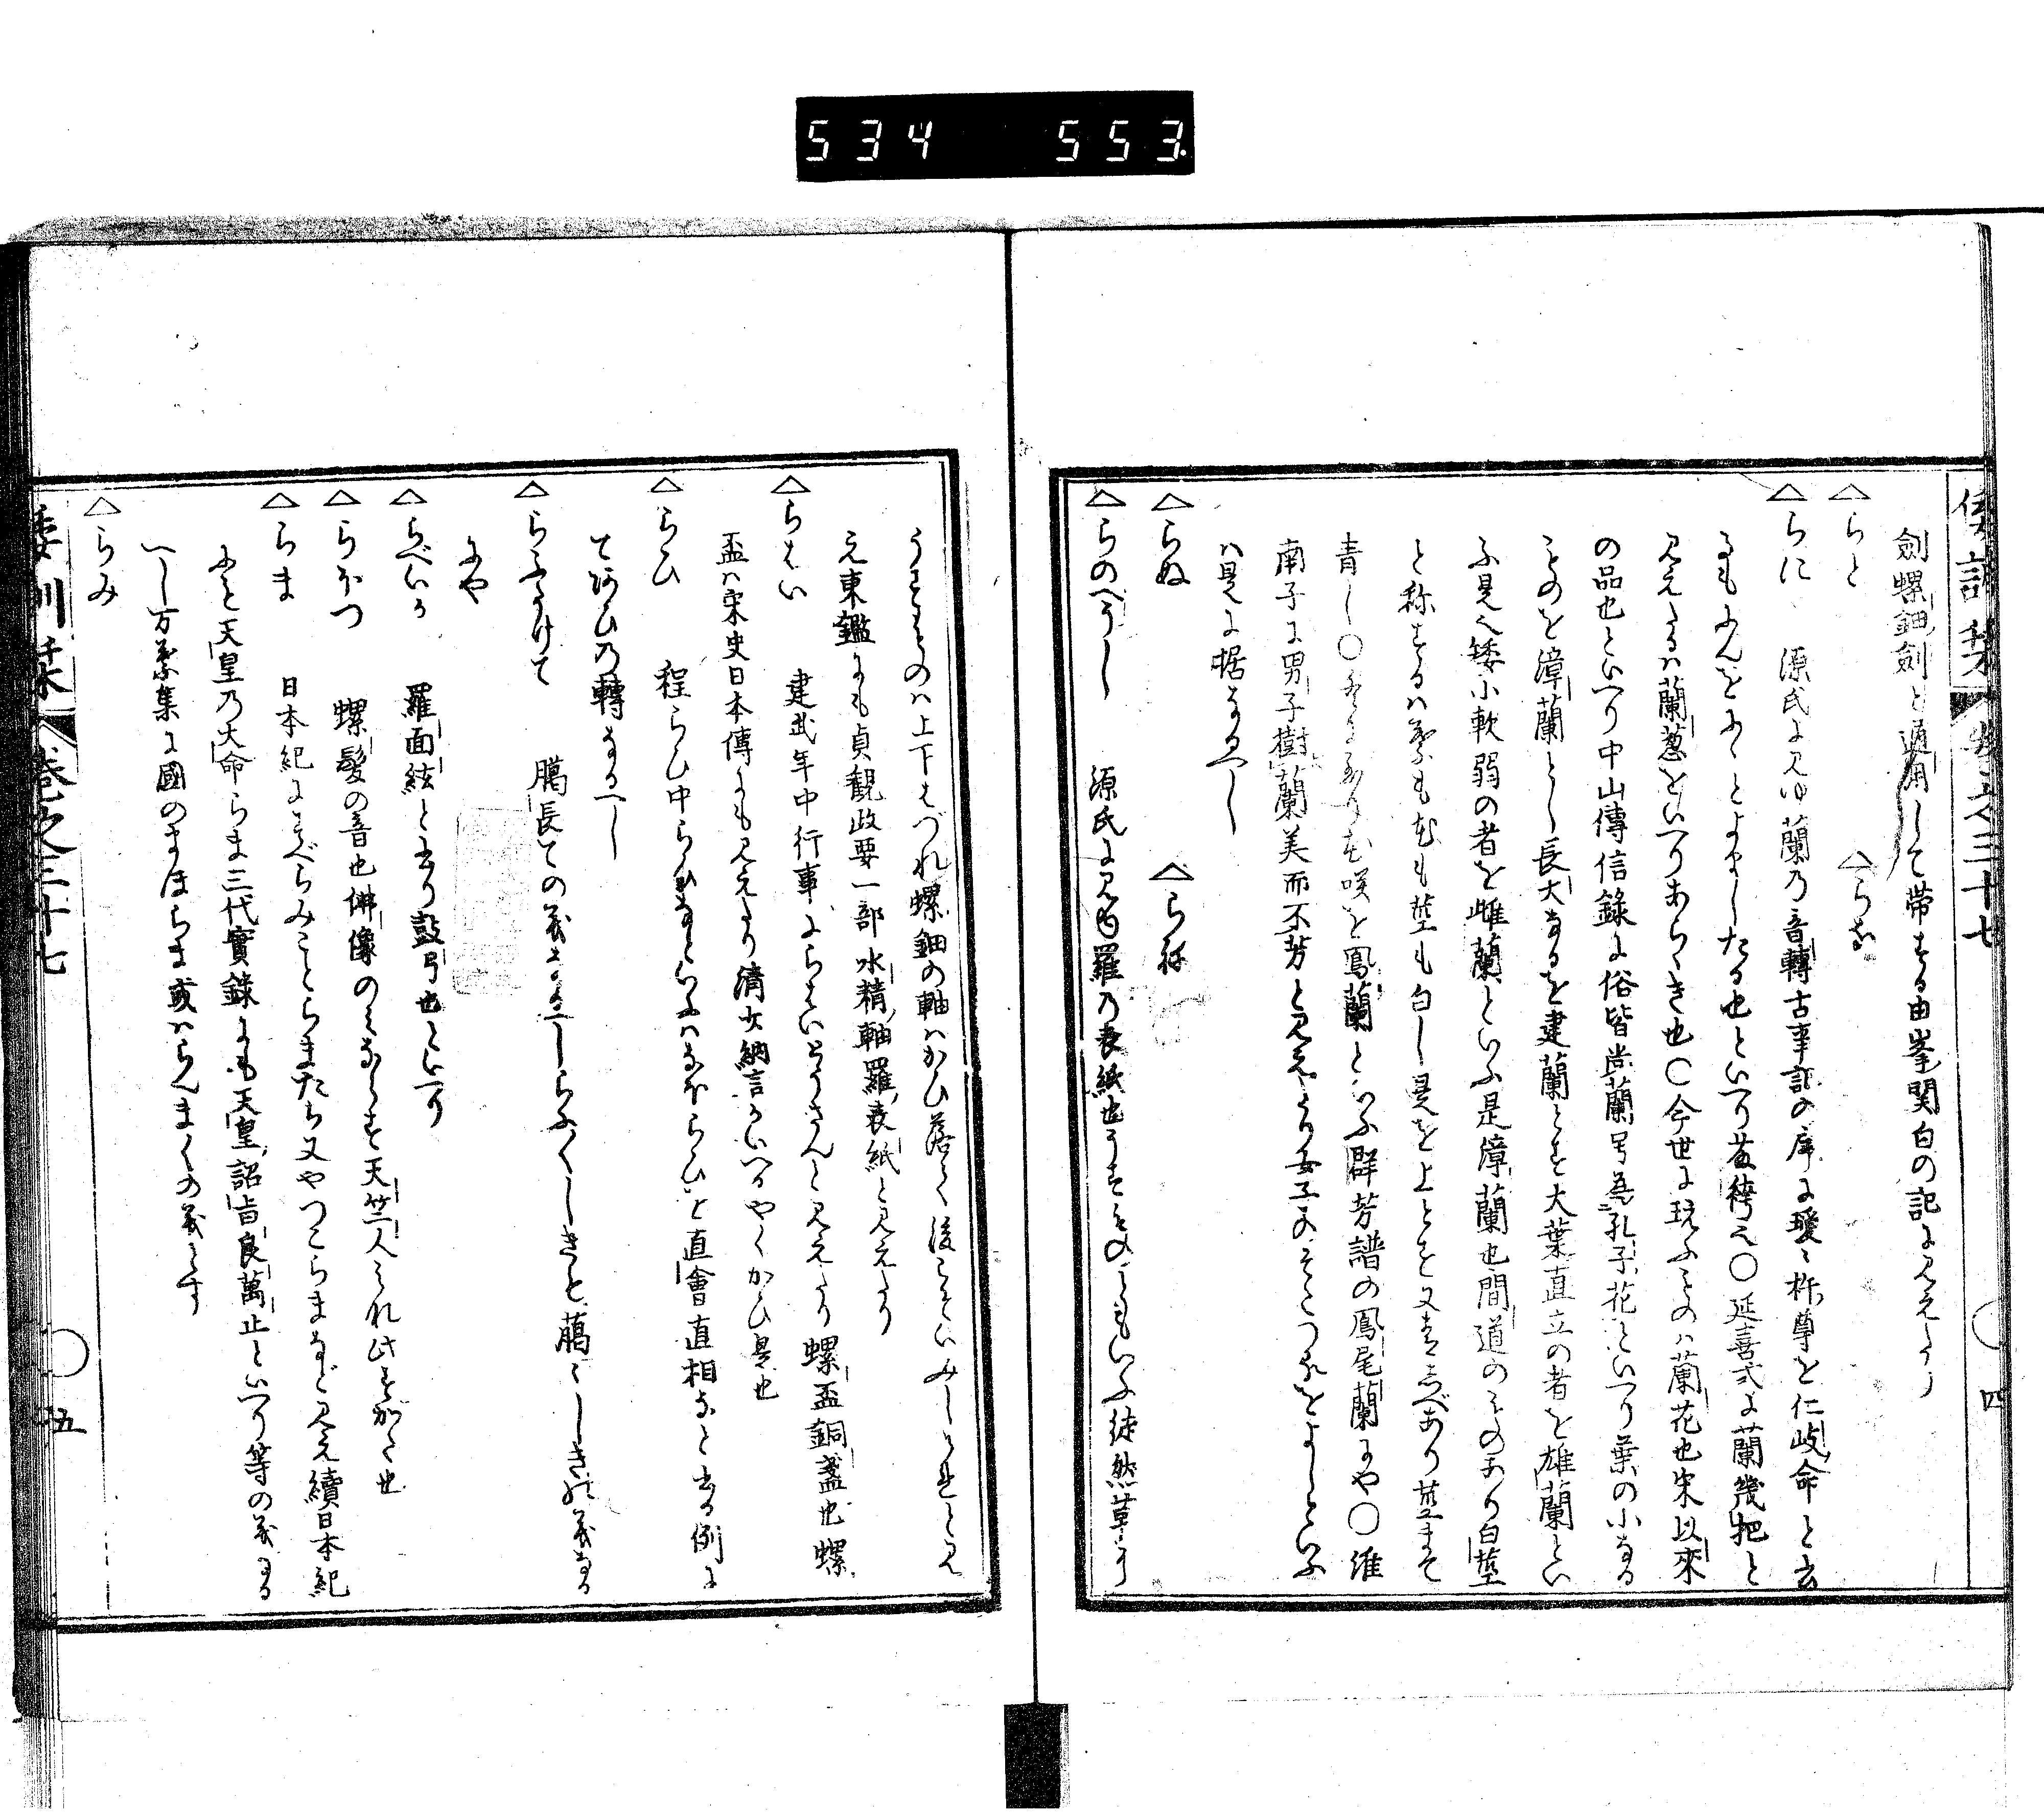 534 553
倭訓栞 巻之三十七 四
劔螺鈿劔と通用して帯する由峯関白の記に見えたり
△らと △らな
△らに 源氏に見ゆ蘭の音轉古事記の序に瓊々杵尊を仁岐命と云
るもんをにゝとよましたる也といへり○延喜式に蘭幾把と
見えたるは蘭葱をいへりあらゝき也○今世に玩ふものは蘭花也宋以來
の品也といへり中山傳信録に俗皆尚蘭号為孔子花といへり葉の小なる
ものを漳蘭とし長大なるを建蘭とす大葉直立の者を雄蘭とい
ふ是也矮小軟弱の者を雌蘭といふ是漳蘭也間道のものあり白莖
と称するは葉も花も莖も白し是を上とす又すぢあり莖まて
青し○冬に至りて花咲を鳳蘭といふ群芳譜の鳳尾蘭にや○淮
南子に男子樹蘭美而不芳と見えたり女子のそたつるをよしといふ
は是に据なるへし
△らぬ △らね
△らのへうし 源氏に見ゆ羅の表紙也うすものゝともいふ徒然草に
うすものは上下はづれ螺鈿の軸はかひ落て後こそいみしけれと見
え東鑑にも貞観政要一部水精軸羅表紙と見えたり
△らはい 建武年中行事にらはいとうさんと見えたり螺盃銅盞也螺
盃は宋史日本傳にも見えたり清少納言かいへるやくかひ是也
△らひ 程らひ中らひなといふはなほらひを直會直相なと書る例に
てあひの轉なるへし
△らふたけて 臈長ての義なるへしらふゝゝしきも臈々しきの義なる
にや
△らべいか 羅面絃と書り鼓弓也といへり
△らほつ 螺髪の音也佛像のみならす天竺人これ此すがた也
△らま 日本紀にすべらみことらまたち又やつこらまなど見え續日本紀
にも天皇の大命らま三代實録にも天皇詔旨良萬止といへり等の義なる
へし万葉集に國のまほらま或はらんまくの義とす
△らみ
倭訓栞 巻之三十七 五